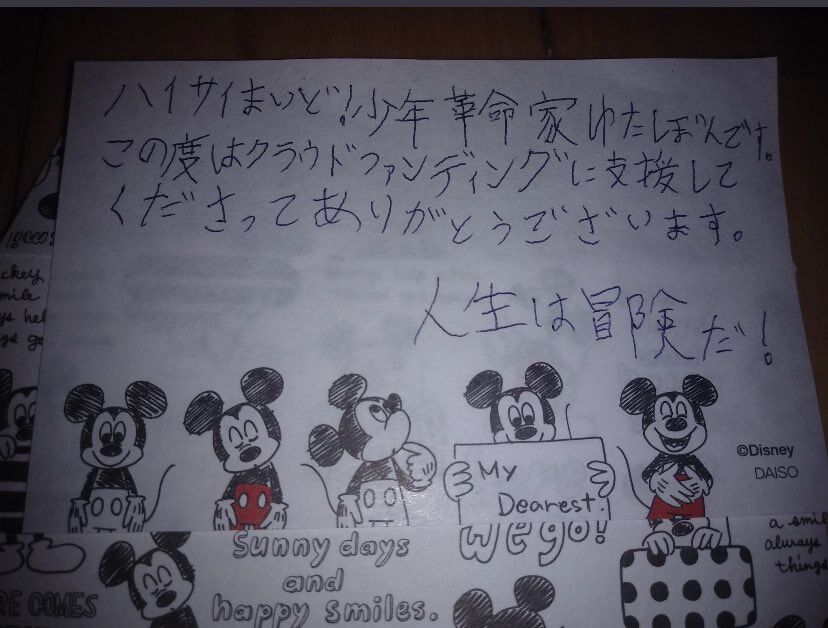 ハイサイまいど!少年革命家ゆたぼんです。
この度はクラウドファンディングに支援して
くださってありがとうございます。
人生は冒険だ!
My
Dearest.
©Disney
DAISO
ckey
mile
wego!
Sunny days
and
happy smiles.
a smile
always
things
RE COMES